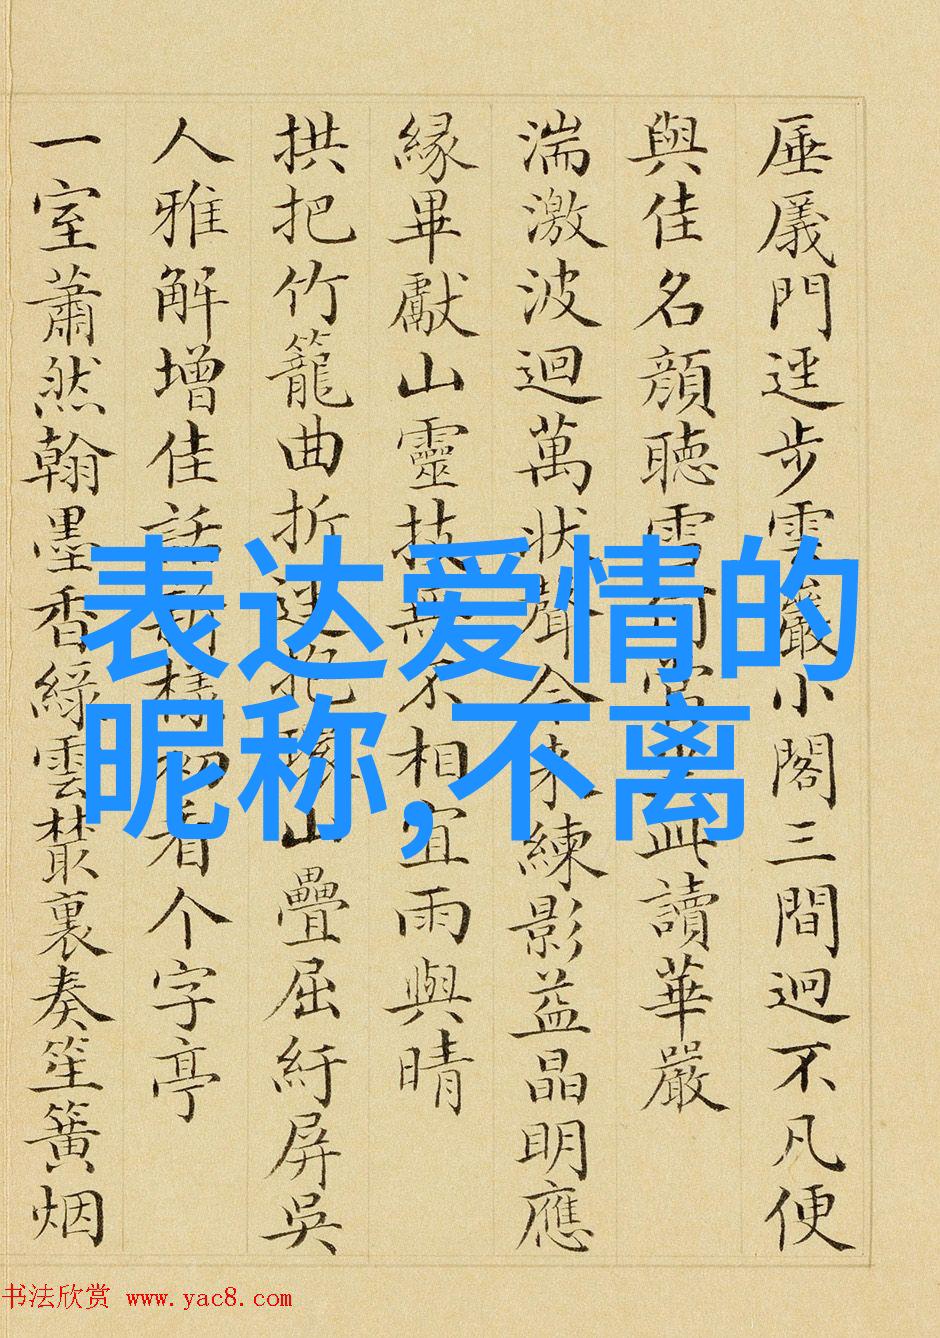 厓㕒門逕步雲巖小閣三間迥不凡便
與佳名顔聽雪何當此讀華嚴
湍激波迴萬狀聲今來練影益晶明應
緣畢獻山靈技無不相宜雨與晴
拱把竹籠曲折迳山疊屈紆屏吳
人雅解增佳話看个字亭
一室蕭然翰墨香綠雲叢裏奏笙簧烟
表达爱情的
昵称,不离
书法欣赏 www.yac8.com